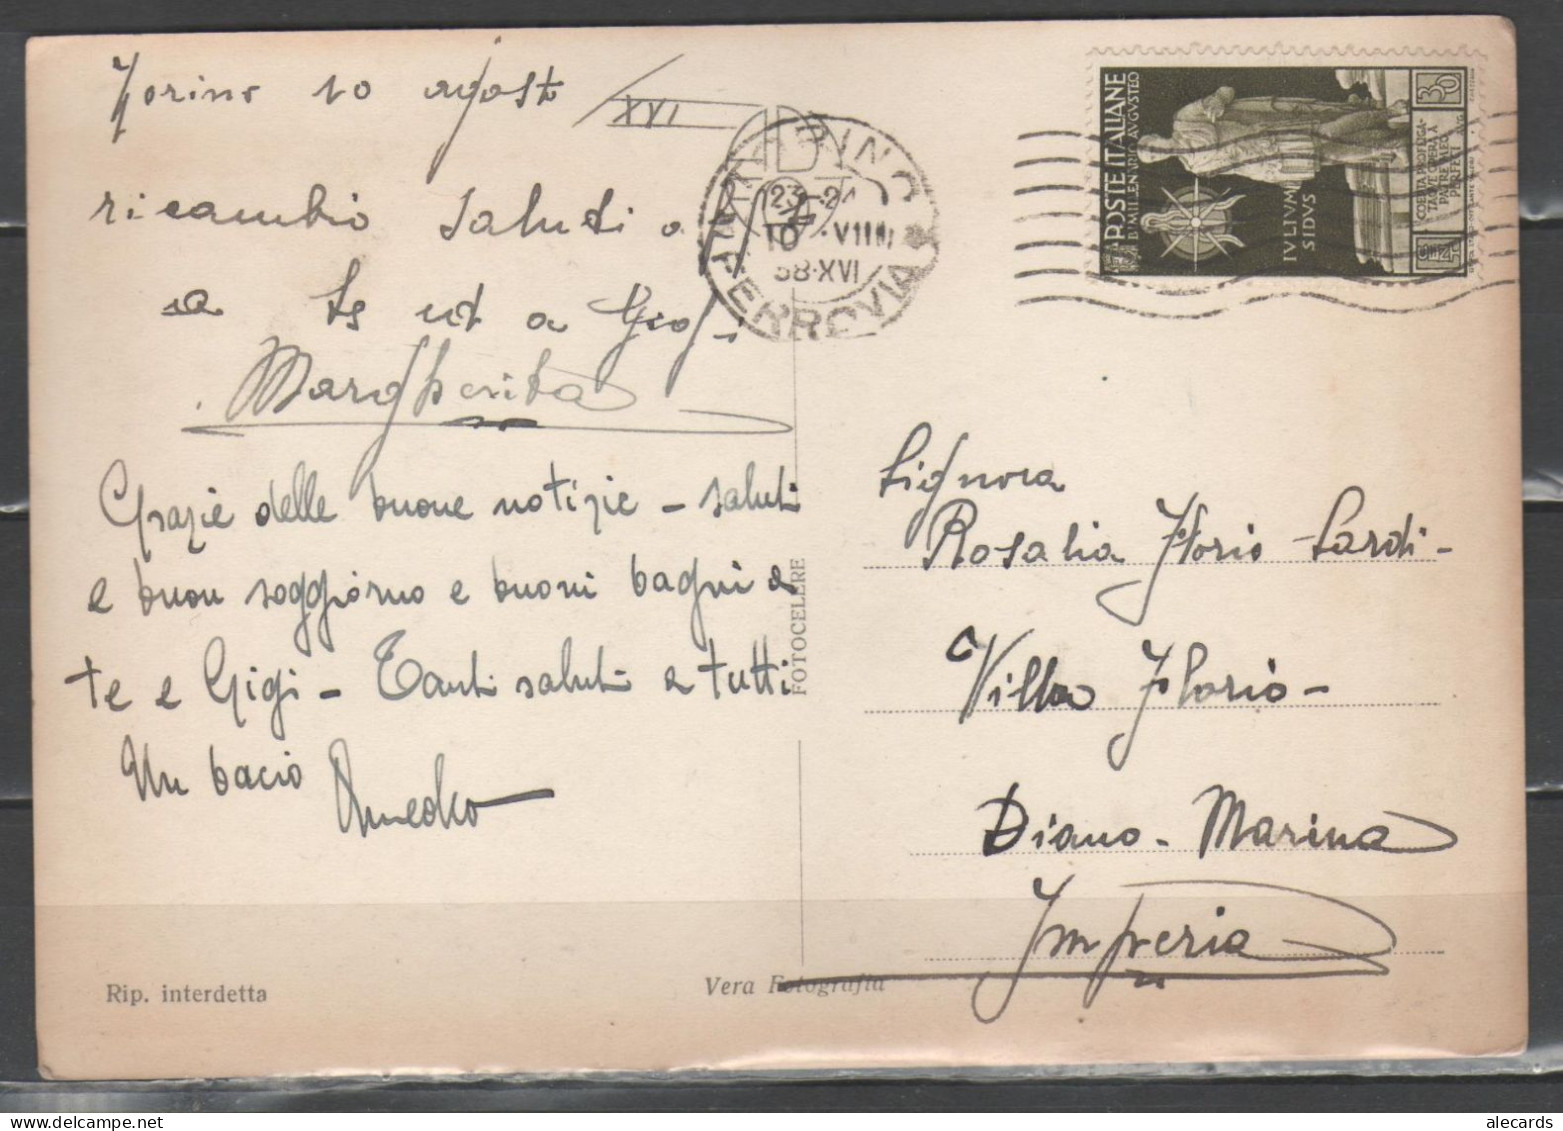 Torino 10 agosto XVI
ricambio saluti a
sa te ed a Gigi
Margherita
Grazie delle buone notizie - saluti
e buon soggiorno e buoni bagni a
te e Gigi - Tanti saluti a tutti
Un bacio Amedeo
Rip. interdetta
Vera Fotografia
FOTOCELERE
TORINO
FERROVIA
23-24
10 VIII
38·XVI
POSTE ITALIANE
BIMILLENARIO AUGUSTEO
IVLIVM
SIDVS
30
CENT
Signora
Rosalia Florio Sardi-
Villa Florio-
Diano-Marina
Imperia
www.delcampe.net
alecards